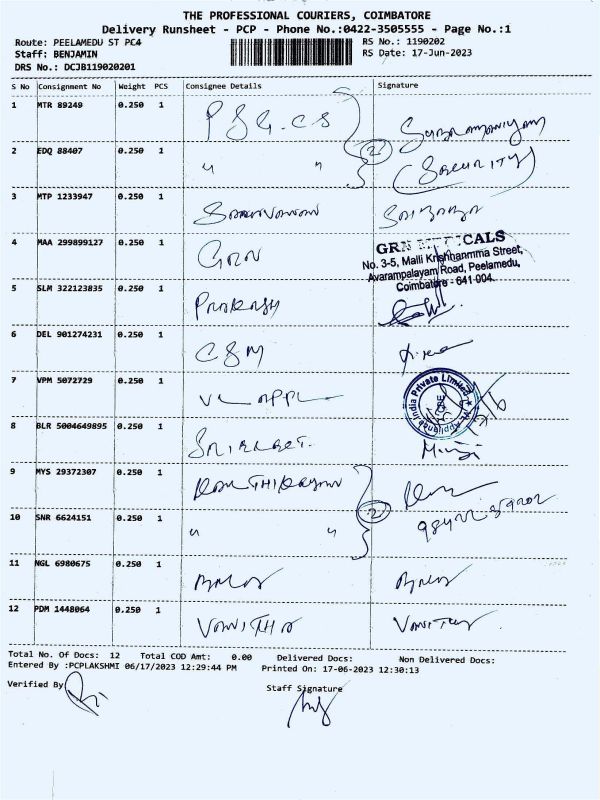 THE PROFESSIONAL COURIERS, COIMBATORE
Delivery Runsheet - PCP - Phone No.:0422-3505555 - Page No.:1
Route: PEELAMEDU ST PC4 RS No.: 1190202
Staff: BENJAMIN RS Date: 17-Jun-2023
DRS No.: DCJB119020201
S No Consignment No Weight PCS Consignee Details Signature
1 MTR 89249 0.250 1 PSG.CS Subramaniyam
2 EDQ 88407 0.250 1 " " 2 (Security)
3 MTP 1233947 0.250 1 Saravanan
4 MAA 299899127 0.250 1 GRN
GRN MEDICALS
No. 3-5, Malli Krishnanmma Street,
Avarampalayam Road, Peelamedu,
Coimbatore - 641 004.
5 SLM 322123835 0.250 1 Prakash
6 DEL 901274231 0.250 1 CSM
7 VPM 5072729 0.250 1 India Private Limited
8 BLR 5004649895 0.250 1
9 MYS 29372307 0.250 1
10 SNR 6624151 0.250 1 " " 2
11 NGL 6980675 0.250 1
12 PDM 1448064 0.250 1 VANITHA
Total No. Of Docs: 12 Total COD Amt: 0.00 Delivered Docs: Non Delivered Docs:
Entered By :PCPLAKSHMI 06/17/2023 12:29:44 PM Printed On: 17-06-2023 12:30:13
Verified By Staff Signature